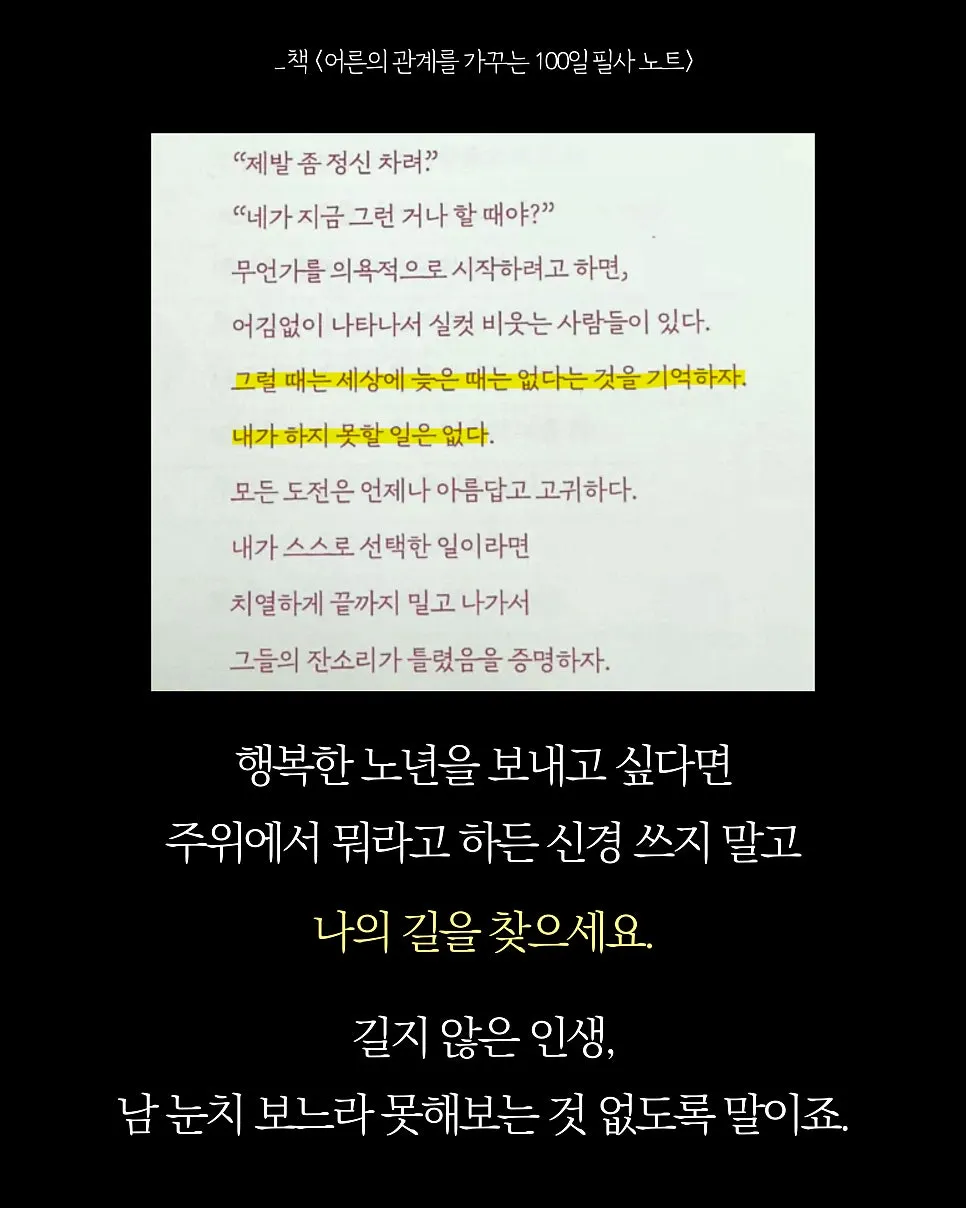 _책 〈어른의 관계를 가꾸는 100일 필사 노트〉
“제발 좀 정신 차려.”
“네가 지금 그런 거나 할 때야?”
무언가를 의욕적으로 시작하려고 하면,
어김없이 나타나서 실컷 비웃는 사람들이 있다.
그럴 때는 세상에 늦은 때는 없다는 것을 기억하자.
내가 하지 못할 일은 없다.
모든 도전은 언제나 아름답고 고귀하다.
내가 스스로 선택한 일이라면
치열하게 끝까지 밀고 나가서
그들의 잔소리가 틀렸음을 증명하자.
행복한 노년을 보내고 싶다면
주위에서 뭐라고 하든 신경 쓰지 말고
나의 길을 찾으세요.
길지 않은 인생,
남 눈치 보느라 못해보는 것 없도록 말이죠.